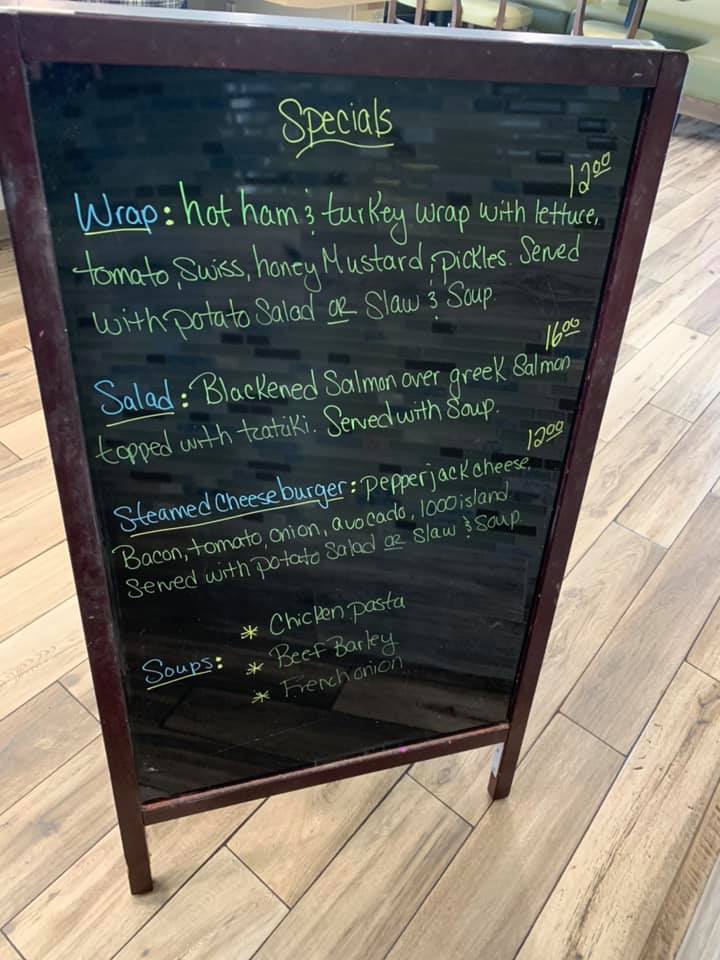 Specials
12.00
Wrap: hot ham & turkey wrap with lettuce,
tomato, Swiss, honey Mustard, pickles. Served
with potato Salad OR Slaw & Soup.
16.00
Salad: Blackened Salmon over greek Salmon
topped with tzatziki. Served with Soup.
12.00
Steamed Cheeseburger: pepperjack cheese,
Bacon, tomato, onion, avocado, 1000 island
Served with potato Salad OR Slaw & Soup
* Chicken pasta
Soups: * Beef Barley
* French onion